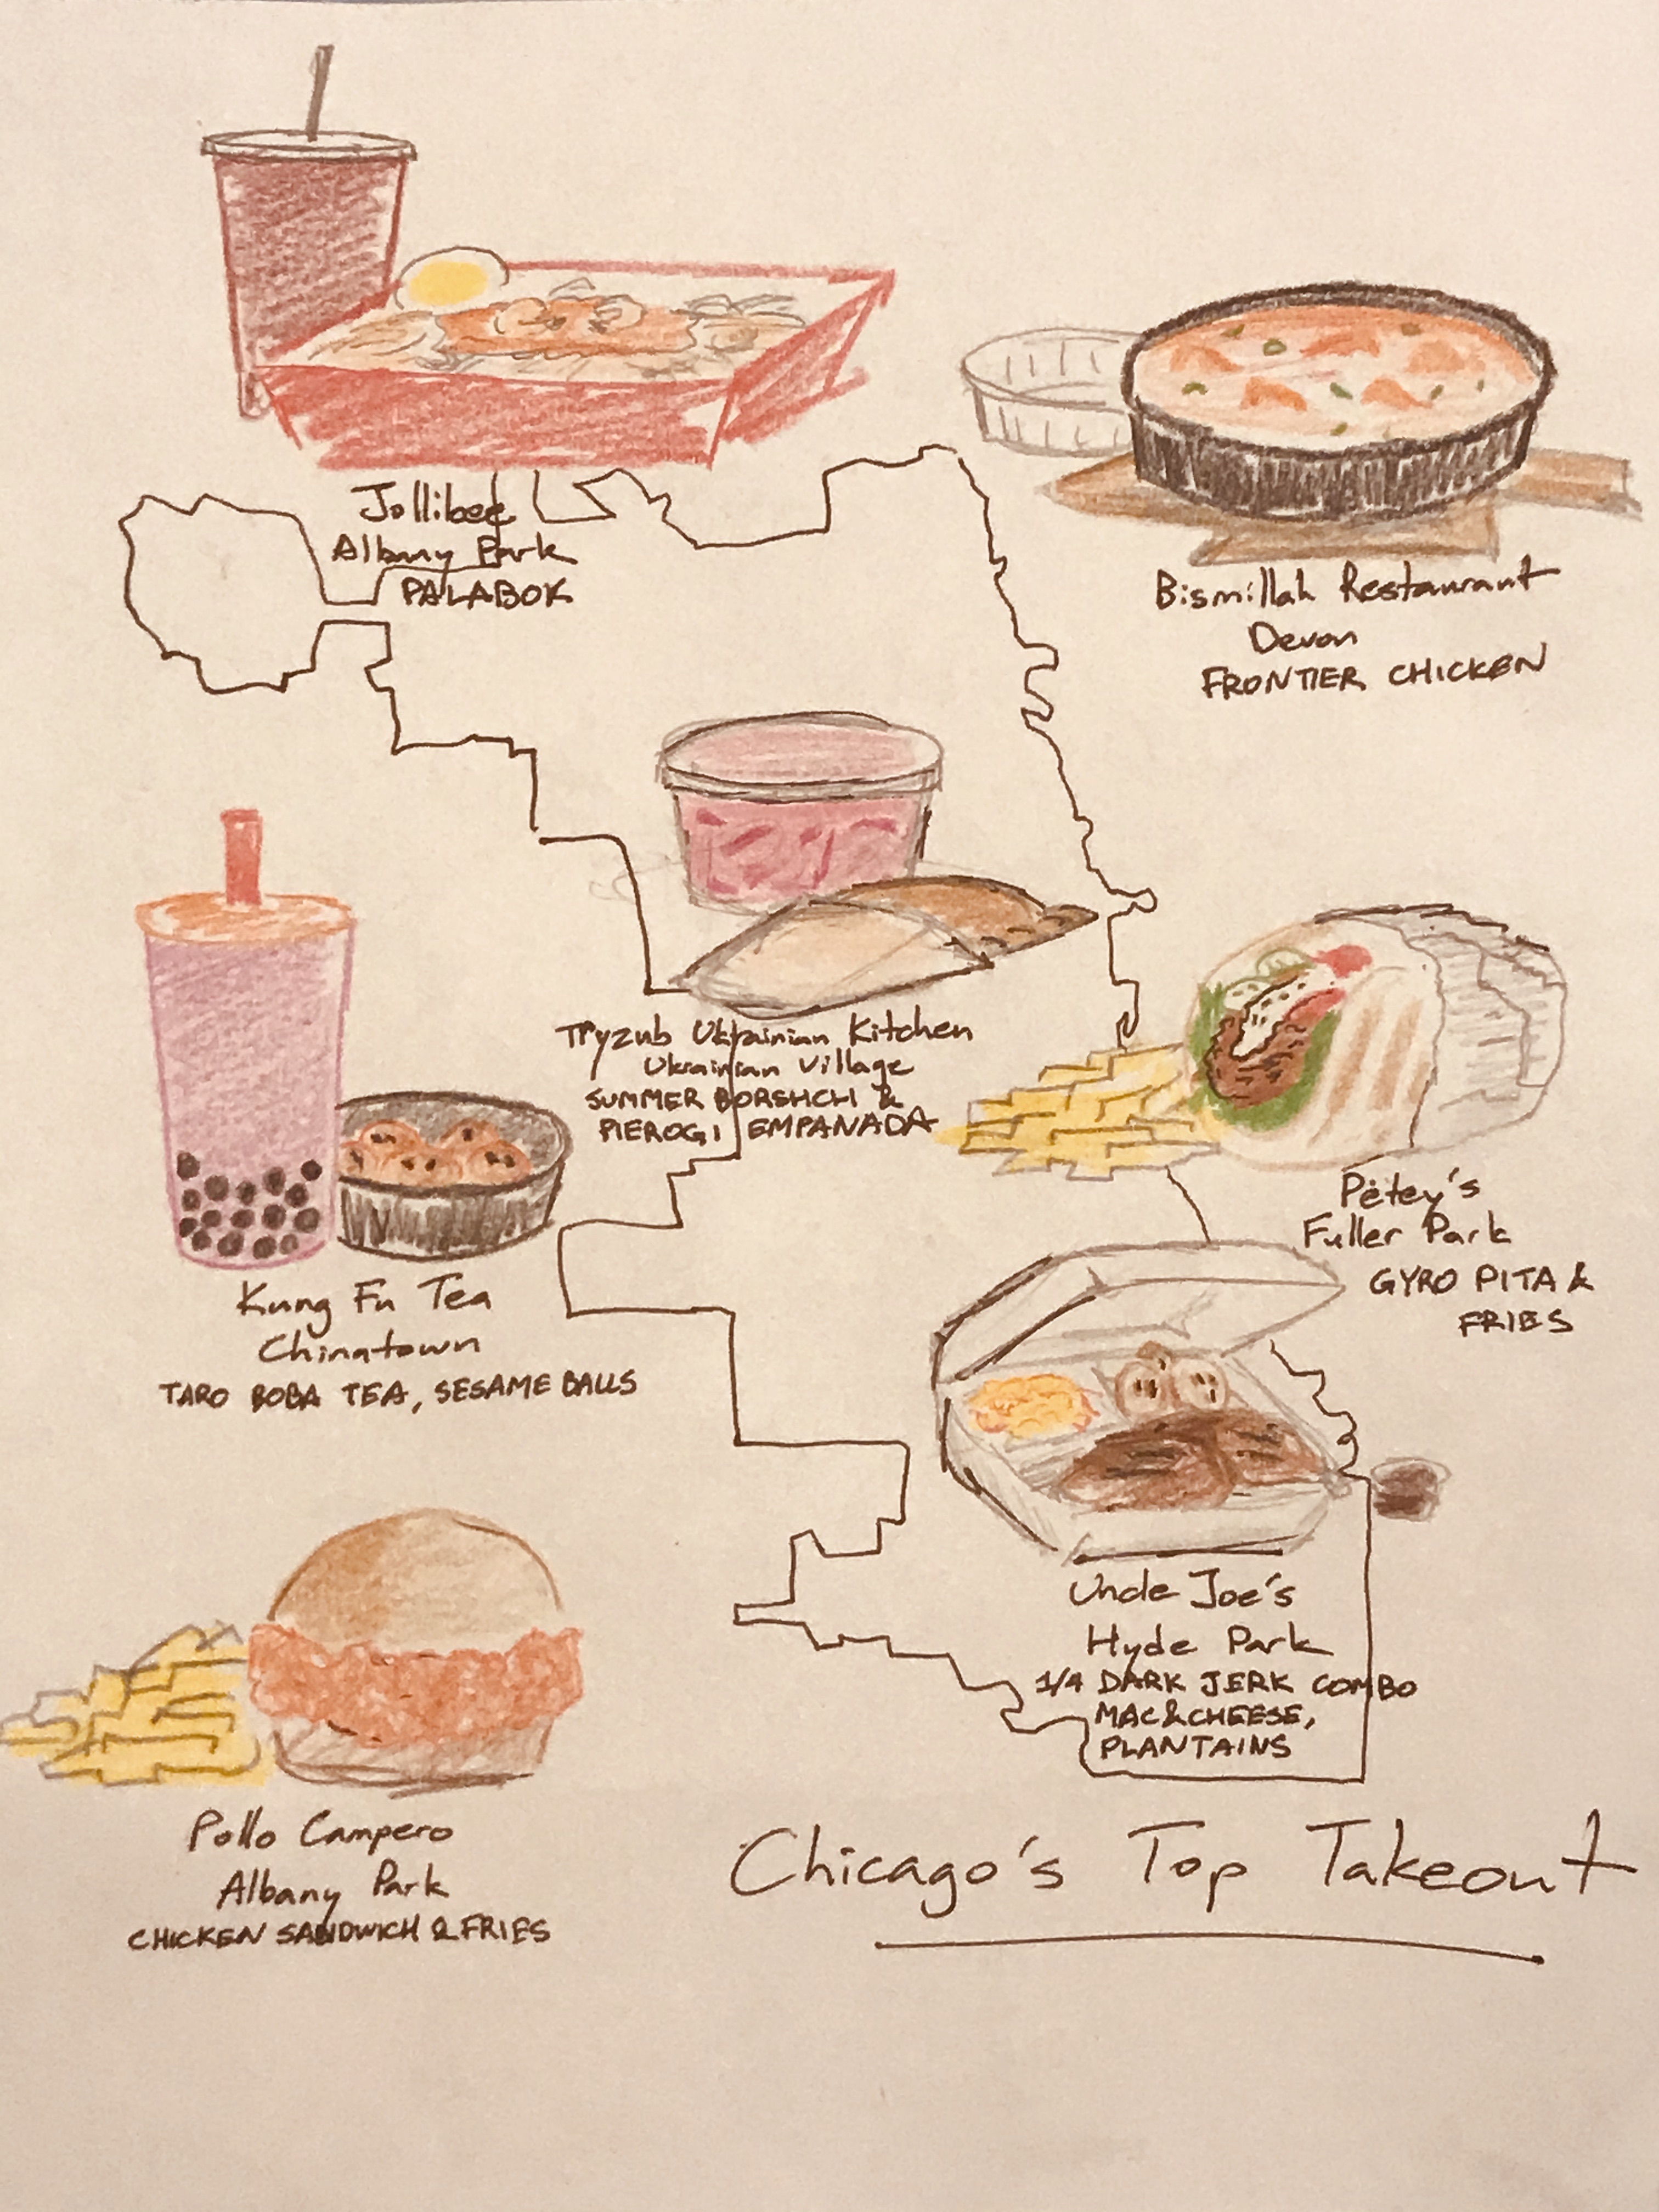 Jollibee
Albany Park
PALABOK
Bismillah Restaurant
Devon
FRONTIER CHICKEN
Tryzub Ukrainian Kitchen
Ukrainian Village
SUMMER BORSHCH &
PIEROGI EMPANADA
Petey's
Fuller Park
GYRO PITA &
FRIES
Kung Fu Tea
Chinatown
TARO BOBA TEA, SESAME BALLS
Uncle Joe's
Hyde Park
1/4 DARK JERK COMBO
MAC&CHEESE,
PLANTAINS
Pollo Campero
Albany Park
CHICKEN SANDWICH & FRIES
Chicago's Top Takeout